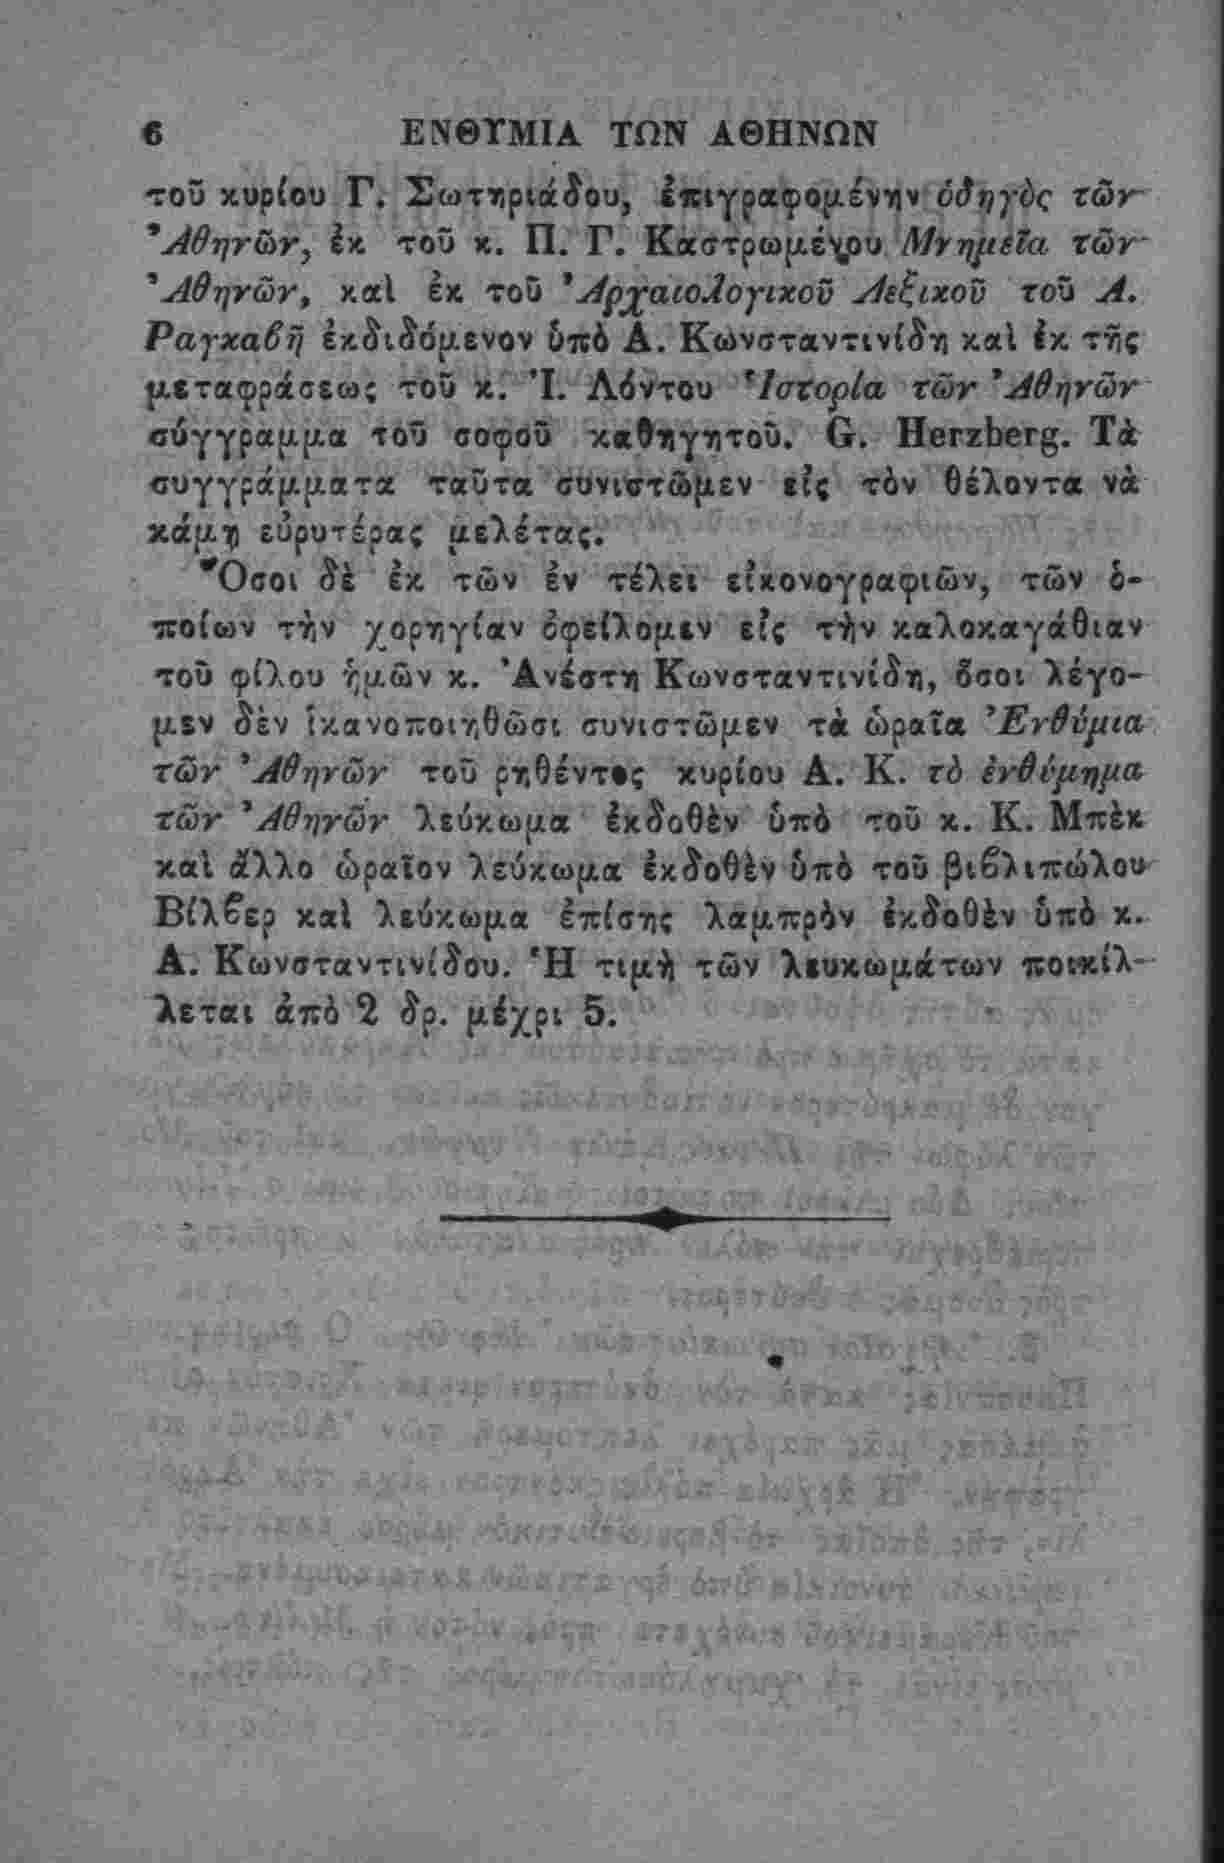 6 ΕΝΘΥΜΙΑ ΤΩΝ ΑΘΗΝΩΝ
τοῦ κυρίου Γ. Σωτηριάδου, ἐπιγραφομένην ὁδηγὸς τῶν
Ἀθηνῶν, ἐκ τοῦ κ. Π. Γ. Καστρωμένου Μνημεῖα τῶν
Ἀθηνῶν, καὶ ἐκ τοῦ Ἀρχαιολογικοῦ Λεξικοῦ τοῦ Α.
Ραγκαβῆ ἐκδιδόμενον ὑπὸ Α. Κωνσταντινίδη καὶ ἐκ τῆς
μεταφράσεως τοῦ κ. Ἰ. Λόντου Ἱστορία τῶν Ἀθηνῶν
σύγγραμμα τοῦ σοφοῦ καθηγητοῦ. G. Herzberg. Τὰ
συγγράμματα ταῦτα συνιστῶμεν εἰς τὸν θέλοντα νὰ
κάμῃ εὐρυτέρας μελέτας.
Ὅσοι δὲ ἐκ τῶν ἐν τέλει εἰκονογραφιῶν, τῶν ὁ-
ποίων τὴν χορηγίαν ὀφείλομεν εἰς τὴν καλοκαγάθιαν
τοῦ φίλου ἡμῶν κ. Ἀνέστη Κωνσταντινίδη, ὅσοι λέγο-
μεν δὲν ἱκανοποιηθῶσι συνιστῶμεν τὰ ὡραῖα Ἐνθύμια
τῶν Ἀθηνῶν τοῦ ρηθέντος κυρίου Α. Κ. τὸ ἐνθύμημα
τῶν Ἀθηνῶν λεύκωμα ἐκδοθὲν ὑπὸ τοῦ κ. Κ. Μπὲκ
καὶ ἄλλο ὡραῖον λεύκωμα ἐκδοθὲν ὑπὸ τοῦ βιβλιπώλου
Βίλβερ καὶ λεύκωμα ἐπίσης λαμπρὸν ἐκδοθὲν ὑπὸ κ.
Α. Κωνσταντινίδου. Ἡ τιμὴ τῶν λευκωμάτων ποικίλ-
λεται ἀπὸ 2 δρ. μέχρι 5.